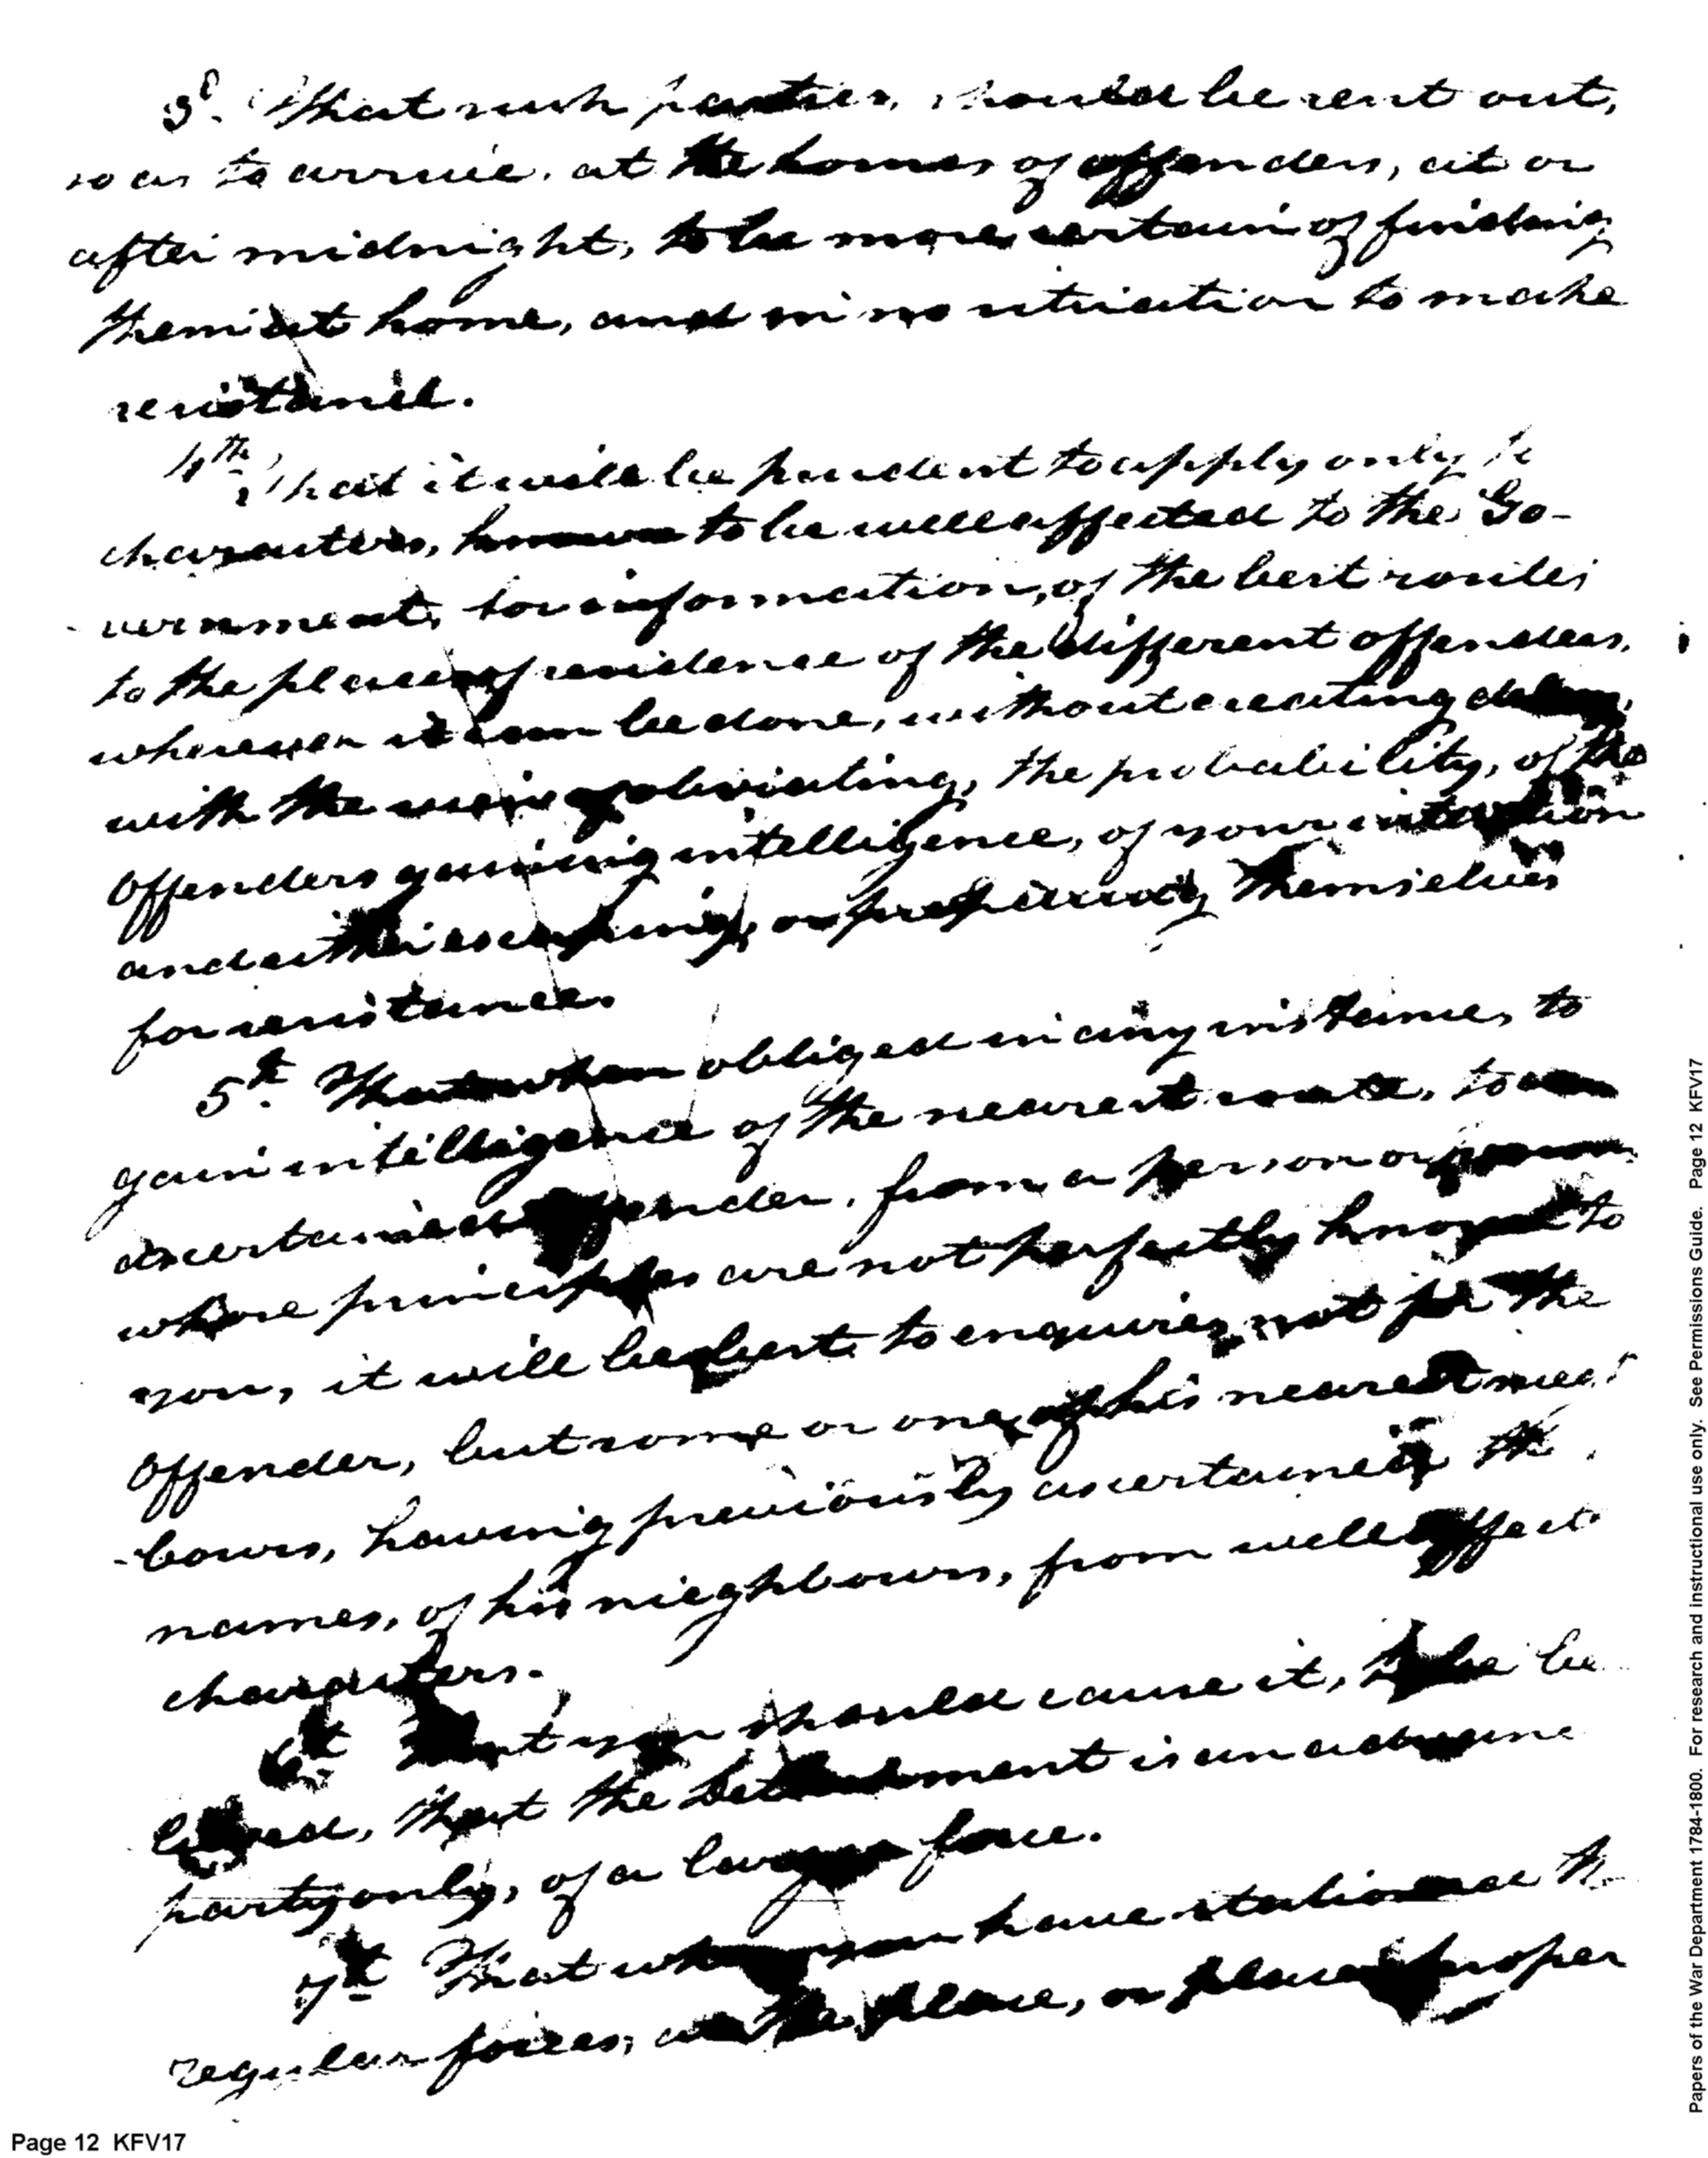 3d. That such parties, should be sent out,
so as to arrive, at the homes of offenders, at or
after midnight, to be more certain of finding
them at home, and in no situation to make
resistance.
4th, That it will be prudent to apply only to
characters, known to be well affected to the Go-
vernment, for information, of the best routes
to the places of residence of the different offenders,
wherever it can be done, without creating delay,
with the view of obviating, the probability, of the
offenders gaining intelligence, of your intention
and either escaping, or preparing themselves
for resistance.
5th. That when obliged in any instance, to
gain intelligence of the nearest route, to an
ascertained offender, from a person or persons
whose principles are not perfectly known to
you, it will be best to enquire, not for the
offender, but some or one of his nearest nieg
-bours, having previously ascertained the
names, of his nieghbours, from well affect
characters.
6th. That you should cause it, to be be
lieved, that the Detachment is an advance
party only, of a larger force.
7th That when you have stationed the
regular forces, at the place, or places proper
Page 12 KFV17
Papers of the War Department 1784-1800. For research and instructional use only. See Permissions Guide. Page 12 KFV17